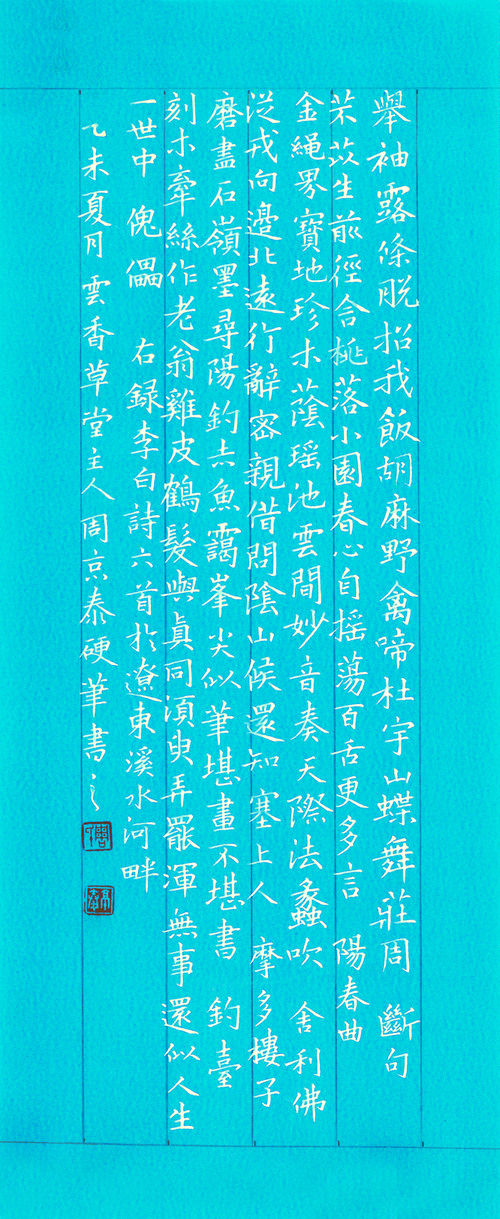 舉袖露條脱招我飯胡麻野禽啼杜宇山蝶舞莊周 斷句
芣苡生前徑含桃落小園春心自摇蕩百舌更多言 陽春曲
金繩界寶地珍木蔭瑶池雲間妙音奏天際法蠡吹 舍利佛
從戎向邊北遠行辭密親借問陰山候還知塞上人 摩多樓子
磨盡石嶺墨尋陽釣赤魚靄峯尖似筆堪畫不堪書 釣臺
刻木牽絲作老翁雞皮鶴髮與真同須臾弄罷渾無事還似人生
一世中 傀儡 右録李白詩六首於遼東溪水河畔
乙未夏月雲香草堂主人周京泰硬筆書之